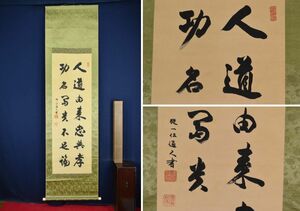 人道由来忠與孝
功名冨貴不足論
人道
功名
由来
冨貴
從一位通久書